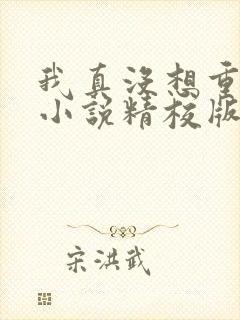 我真没想重
小说精校版
宋洪武